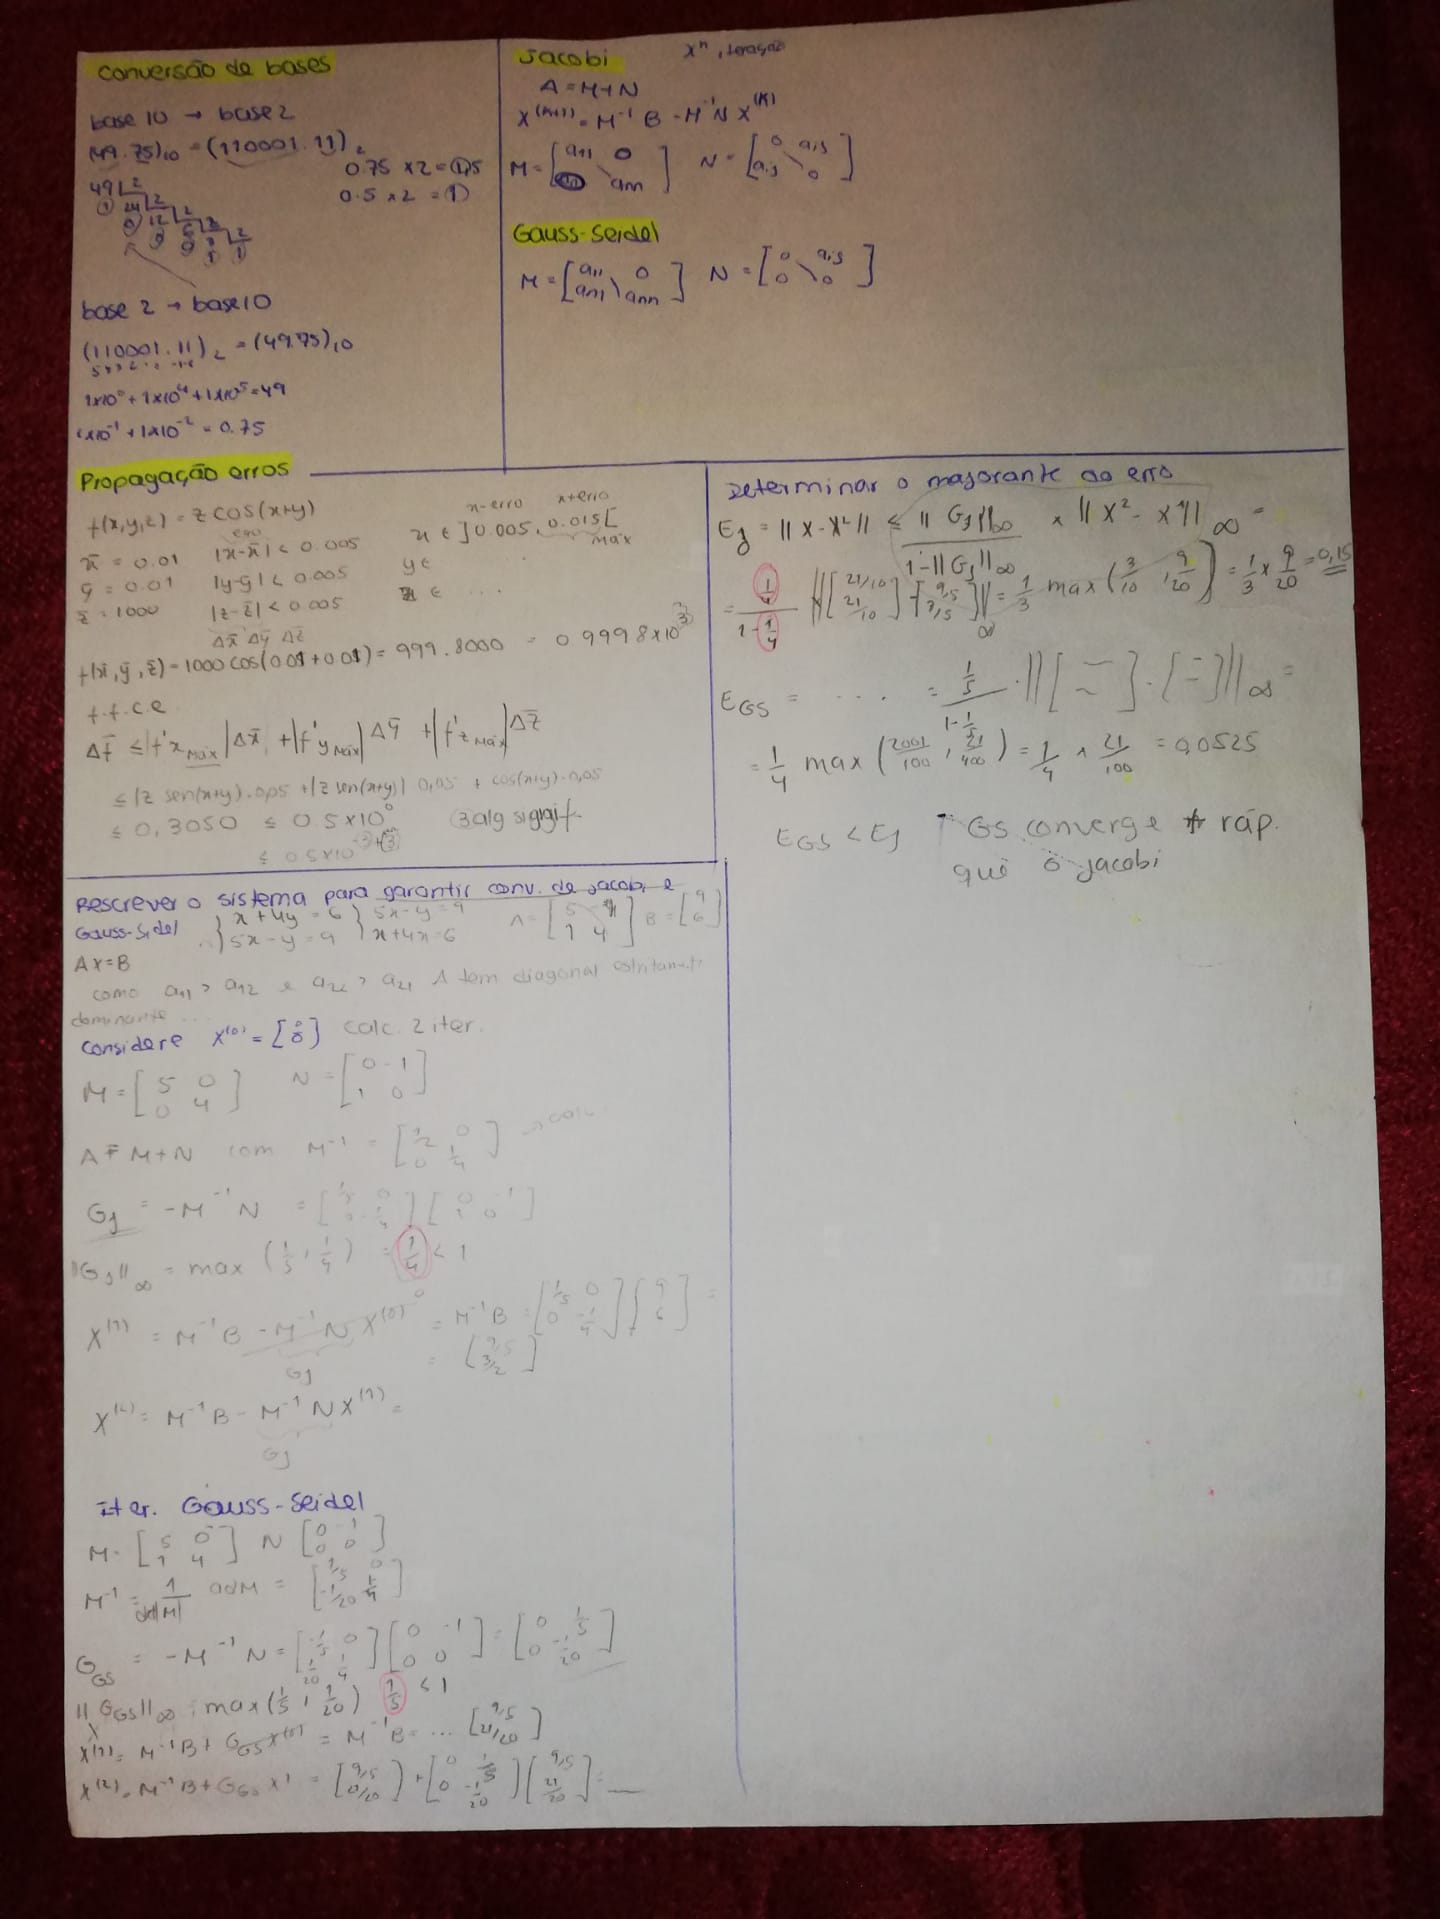 Conversão de bases
base 10 → base 2
(49.75)10 = (110001.11)2
0.75 x2 = 1.5
0.5 x 2 = 1
49 2
1 24 2
0 12 2
base 2 → base 10
(110001.11)2 = (49.75)10
1x10^0 + 1x10^4 + 1x10^5 = 49
1x10^-1 + 1x10^-2 = 0.75
Jacobi
A = M+N
X^(K+1) = M^-1 B - M^-1 N X^(K)
M = [a11 0 ann] N = [0 aij aij 0]
Gauss-Seidel
M = [a11 0 an1 ann] N = [0 aij 0 0]
Propagação erros
f(x,y,z) = z cos(x+y)
x-erro x+erro
erro
x̄ = 0.01 |x-x̄| < 0.005 x ∈ ]0.005, 0.015[
máx
ȳ = 0.01 |y-ȳ| < 0.005 y ∈
z̄ = 1000 |z-z̄| < 0.005 z ∈ ...
Δx̄ Δȳ Δz̄
f(x̄, ȳ, z̄) = 1000 cos(0.01+0.01) = 999.8000 = 0.9998x10^3
f.f.c.e
Δf̄ ≤ |f'x máx| Δx̄ + |f'y máx| Δȳ + |f'z máx| Δz̄
≤ |z sen(x+y)|.0,05 + |z sen(x+y)| 0,05 + cos(x+y).0,05
≤ 0,3050 ≤ 0.5x10^0 3 alg signif.
≤ 0.5x10^-3+3
Determinar o majorante do erro
EJ = ||X-X^2|| ≤ ||GJ||∞ / 1-||GJ||∞ x ||X^2 - X^1||∞ =
= 1/4 / 1-1/4 x ||[21/10 21/10] - [9/5 3/5]||∞ = 1/3 max (3/10, 9/20) = 1/3 x 9/20 = 0,15
EGS = ... = 1/5 / 1-1/5 . ||[ ] - [ ]||∞ =
= 1/4 max (2001/100, 21/400) = 1/4 x 21/100 = 0,0525
EGS < EJ GS converge + ráp.
que o Jacobi
Rescrever o sistema para garantir conv. de Jacobi e
Gauss-Sidel { x+4y = 6 5x-y = 9 } 5x-y = 9 x+4x = 6 A = [5 -1 1 4] B = [9 6]
AX=B
como a11 > a12 e a22 > a21 A tem diagonal estritamente
dominante ...
Considere X^(0) = [0 0] calc. 2 iter.
M = [5 0 0 4] N = [0 -1 1 0]
A = M+N com M^-1 = [1/2 0 0 1/4] → calc.
GJ = -M^-1 N = [1/5 0 0 1/4] [0 -1 1 0]
||GJ||∞ = max (1/5, 1/4) = 1/4 < 1
X^(1) = M^-1 B - M^-1 N X^(0) = M^-1 B = [1/5 0 0 1/4] [9 6] =
GJ
= [9/5 3/2]
X^(2) = M^-1 B - M^-1 N X^(1) =
GJ
Iter. Gauss-Seidel
M = [5 0 1 4] N [0 -1 0 0]
M^-1 = 1/det|M| adM = [1/5 0 -1/20 1/4]
GGS = -M^-1 N = [-1/5 0 1/20 1/4] [0 -1 0 0] = [0 1/5 0 -1/20]
||GGS||∞ = max (1/5, 1/20) 1/5 < 1
X^(1) = M^-1 B + GGS X^(0) = M^-1 B = ... [9/5 21/20]
X^(2) = M^-1 B + GGS X^1 = [9/5 21/20] + [0 1/5 0 -1/20] [9/5 21/20] = __